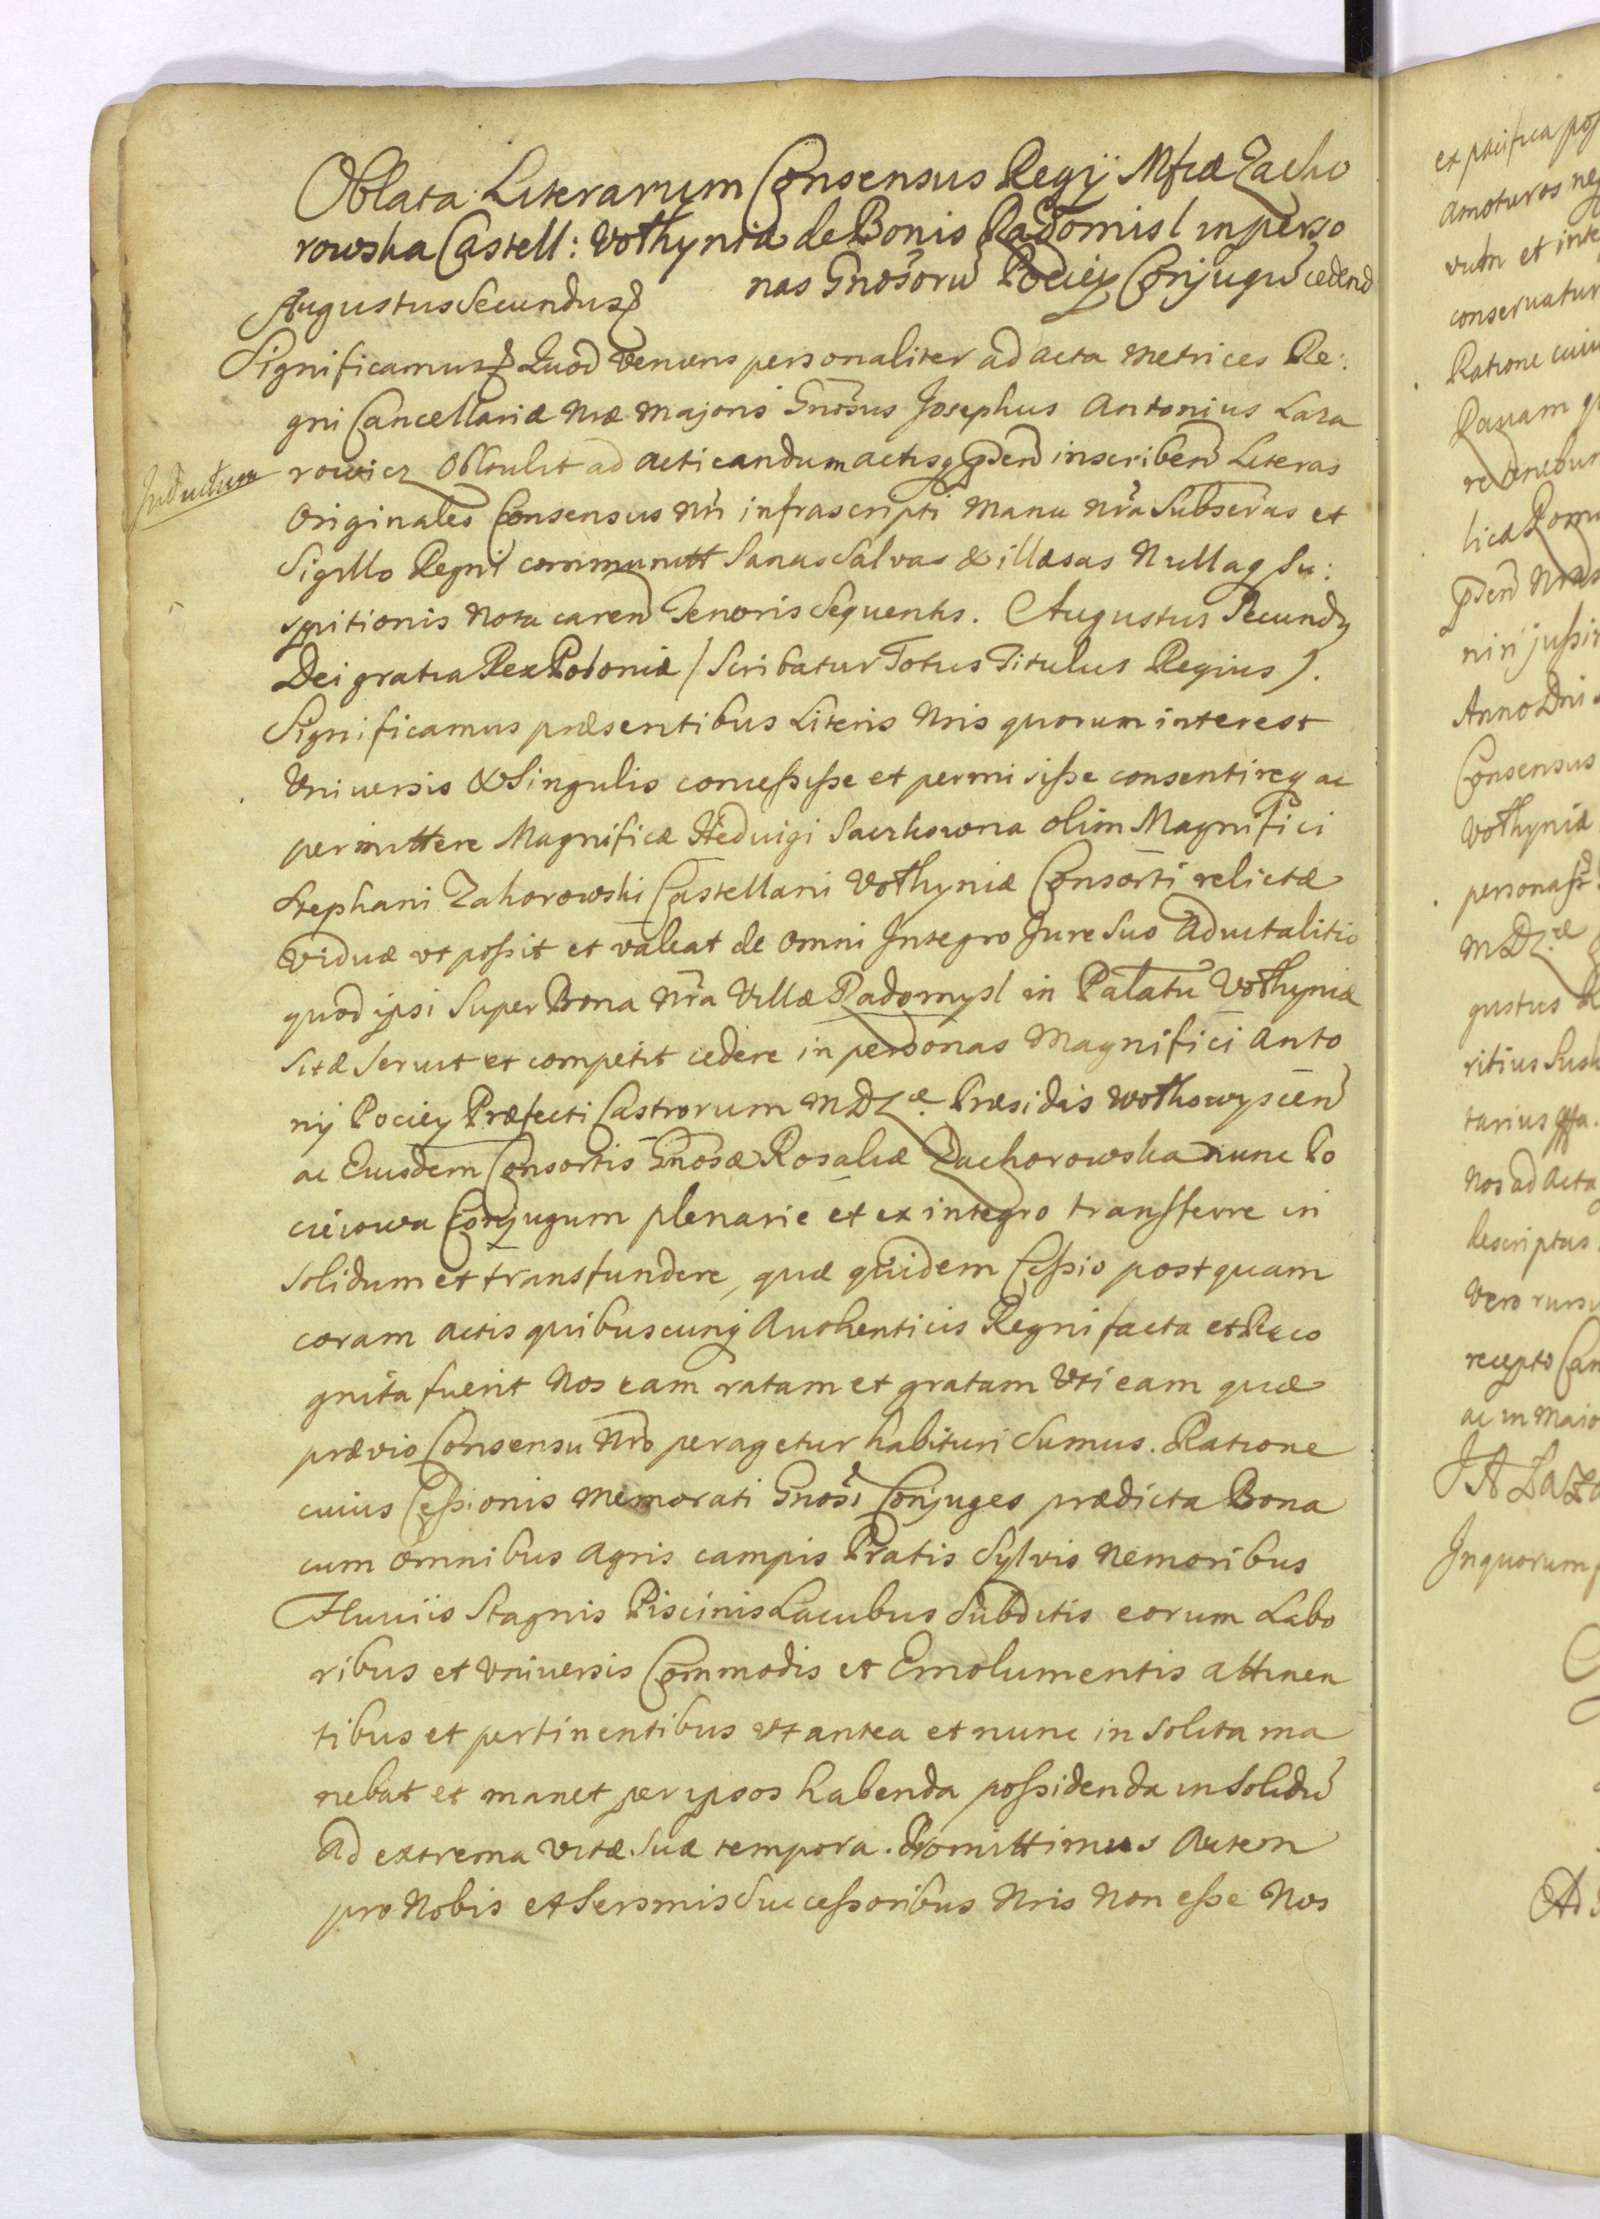 Oblata Literarum Consensus Regÿ Mfcæ Zacho
rowska Castell: Wołhyniæ de Bonis Radomisl in perso
nas Gnosorũ Pociey Conjugũ cedend
Augustus Secundus
Significamus Quod veniens personaliter ad acta Metrices Re:
gni Cancellariæ Nræ Majoris Gnosus Josephus Antonius Laza
Inductum
rowicz Obtulit ad acticandum actisq3 pñtĩ inscriben Literas
Originales Consensus Nri infrascripti Manu Nra Subscras et
Sigillo Regni communitt Sanas Salvas & illæsas Nullaq3 Su:
spitionis Nota caren Tenoris Sequentis. Augustus Secund9
Dei gratia Rex Poloniæ /Scribatur Totus Titulus Regius).
Significamus præsentibus Literis Nris quorum interest
Universis & Singulis concessisse et permisisse consentireq3 ac
permittere Magnificæ Hedvigi Sackowna olim Magnifici
Stephani Zahorowski Castellani Wołhyniæ Consorti relictæ
Viduæ vt possit et valeat de Omni Integro Jure Suo Advitalitio
quod ipsi Super Bona Nra Villæ Radomysl in Palatũ Wołhyniæ
Sitæ Servit et competit cedere in personas Magnifici Anto
nij Pociey Præfecti Castrorum MDLæ. Præsidis Wołkowyscen
ac Eiusdem Consortis Gnosæ Rosaliæ Zachorowska nunc Po
cieiowa Conjugum plenarie et ex integro transferre in
Solidum et transfundere, quæ quidem Cessio postquam
coram actis quibuscunq3 Authenticis Regni facta et Reco
gnita fuerit Nos eam ratam et gratam Uti eam quæ
prævio Consensu Nro peragetur habituri Sumus. Ratione
cuius Cessionis Memorati Gnosi Conjuges prædicta Bona
cum omnibus Agris campis Pratis Sylvis Nemoribus
Fluviis Stagnis Piscinis Lacubus Subditis eorum Labo
ribus et Universis Commodis et Emolumentis attinen
tibus et pertinentibus Vt antea et nunc in Solita ma
nebat et manet per ipsos habenda possidenda in Solidũ
ad extrema vitæ Suæ tempora. Promittimus Autem
pro Nobis et Sersmis Successoribus Nris Non esse Nos
et pacifica pos
amoturos neq
conservatur
Ratione cuiu
Nos ad Acta
descriptus
Vero rursu
recepto Can
ac in Maio
In quorum
Anno Dni
Consensus
Wołhyniæ